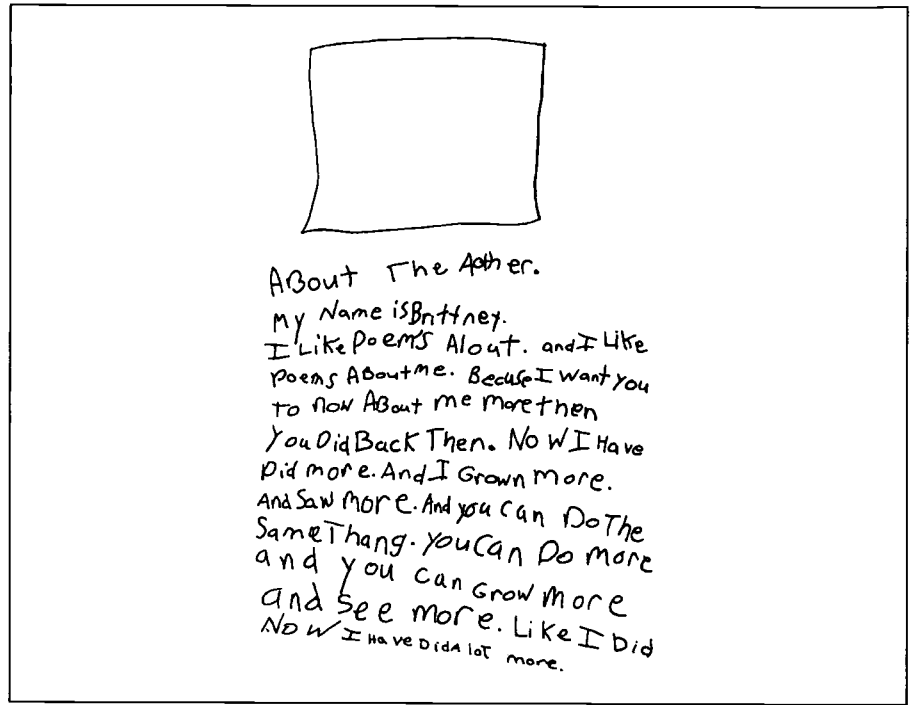 ABout The Aother.
My Name isBrittney.
I Like Poem's Alout. and I Like
Poems ABoutme. Becuse I want you
to now ABout me more then
You Did Back Then. Now I Have
Did more. And I Grown More.
And Saw more. And you Can Do The
Same Thang. You Can Do more
and you can Grow more
and See more. Like I Did
NOW I Have Did A lot more.